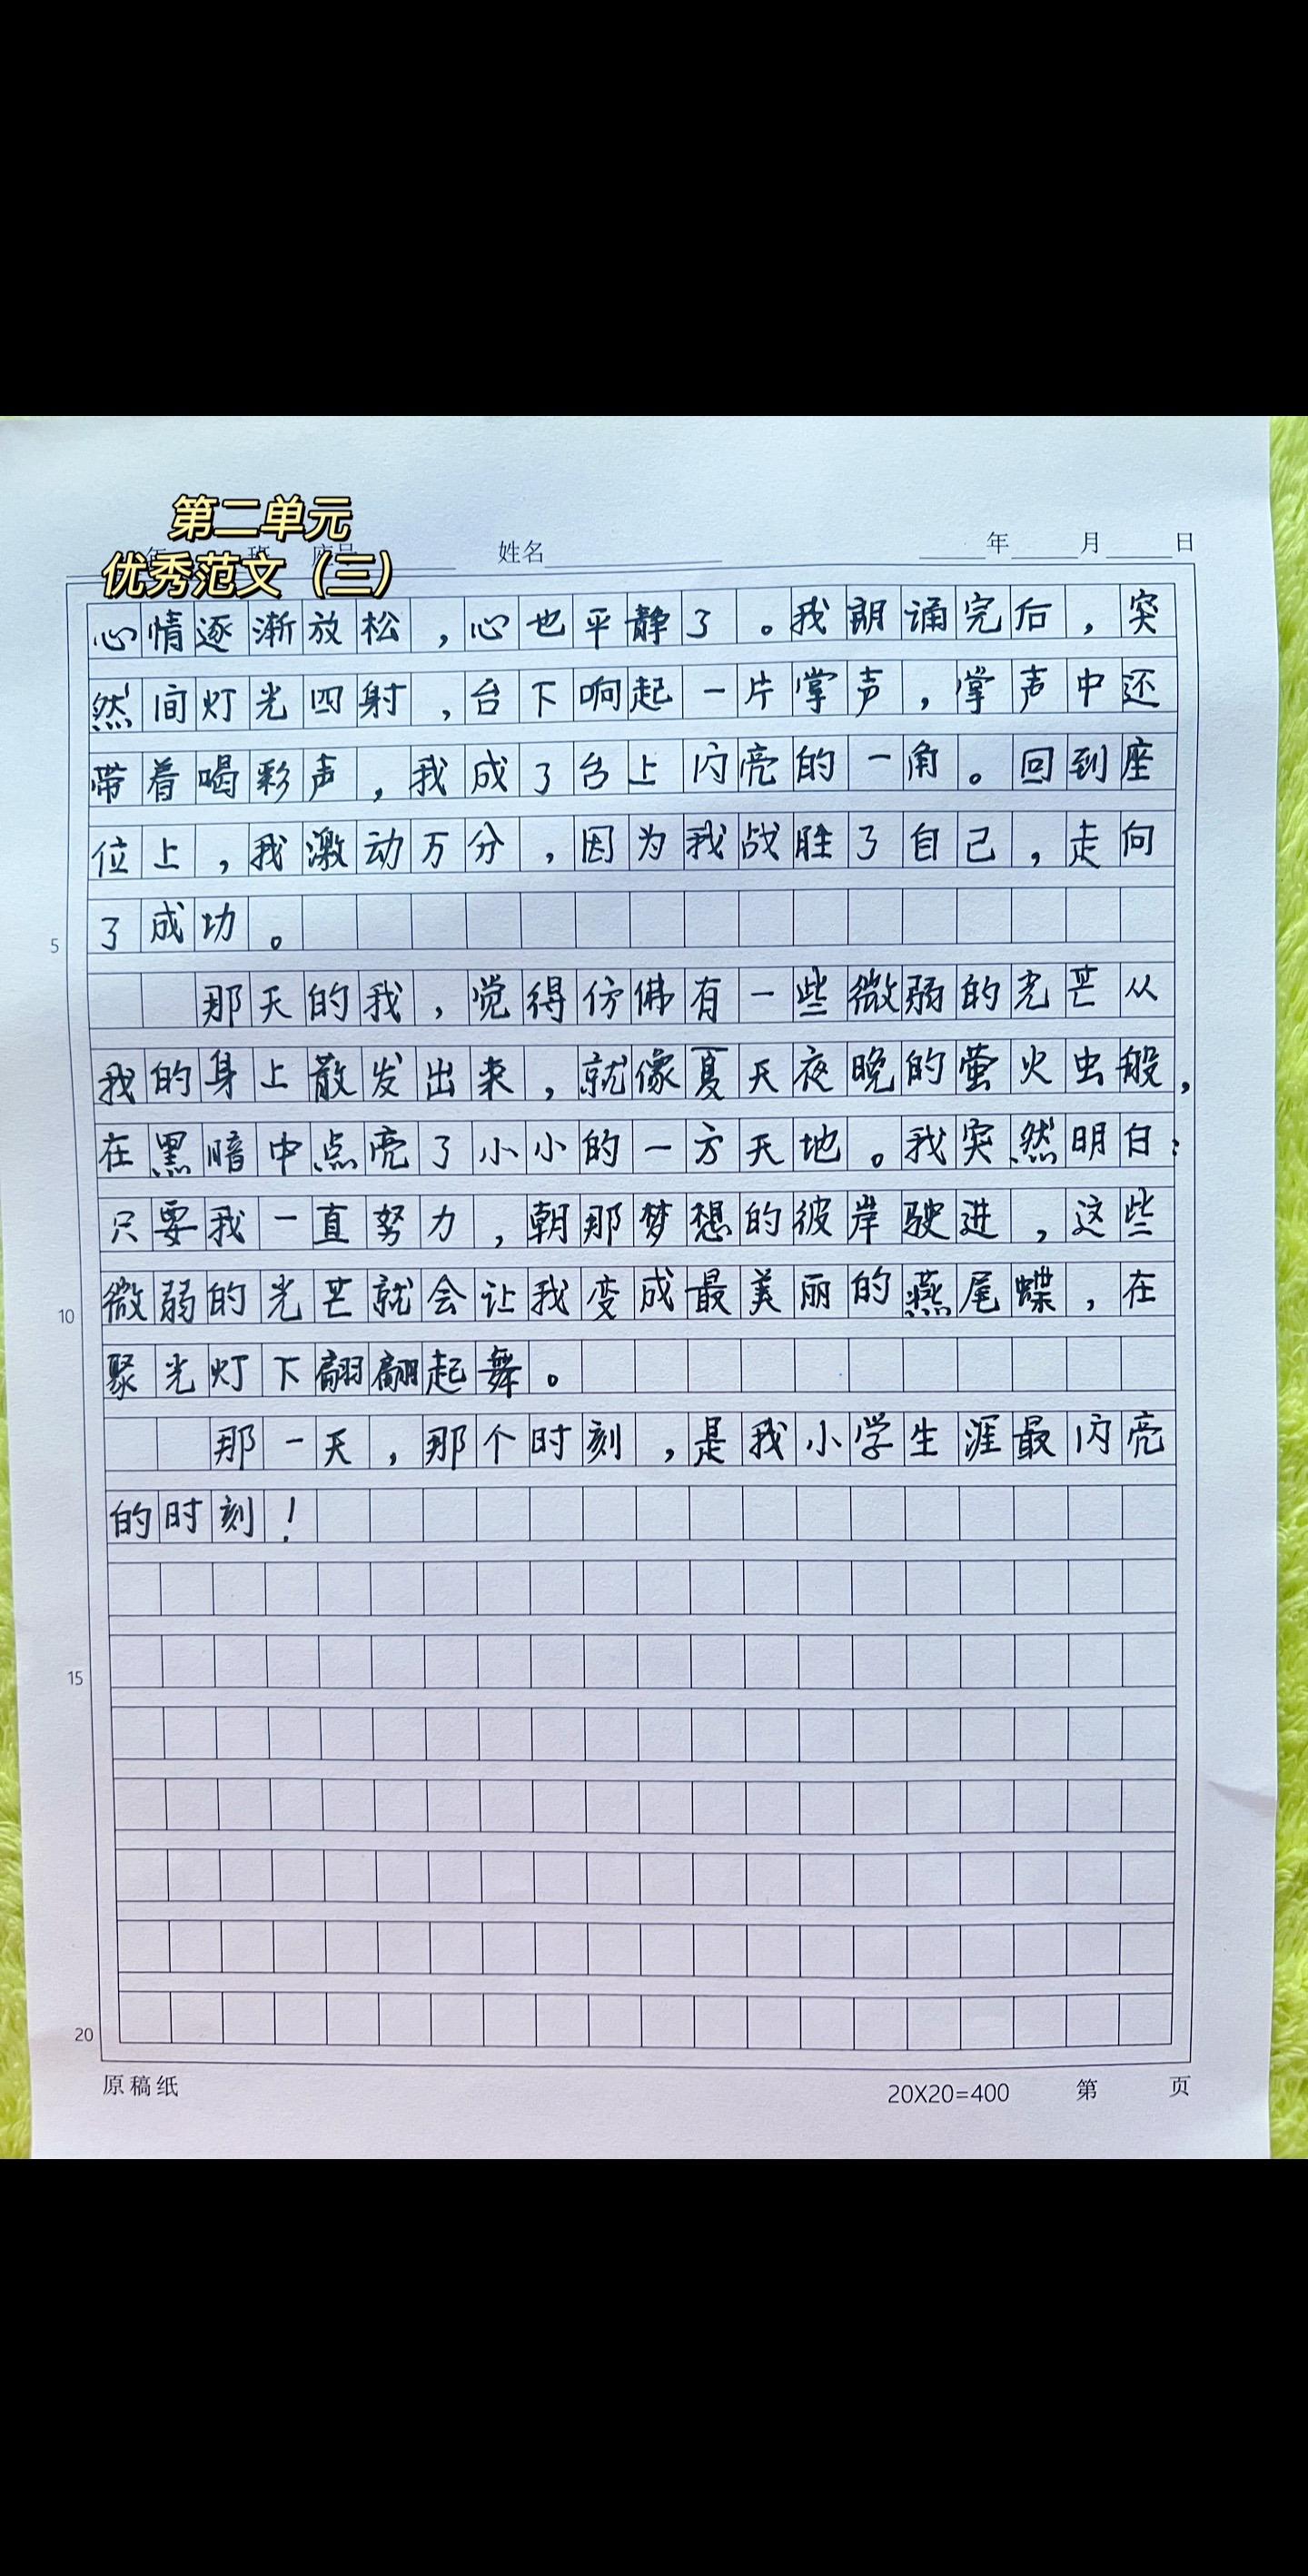 第二单元
优秀范文（三）
年 班 座号 姓名 年 月 日
心情逐渐放松，心也平静了。我朗诵完后，突
然间灯光四射，台下响起一片掌声，掌声中还
带着喝彩声，我成了台上闪亮的一角。回到座
位上，我激动万分，因为我战胜了自己，走向
了成功。
5
那天的我，觉得仿佛有一些微弱的光芒从
我的身上散发出来，就像夏天夜晚的萤火虫般，
在黑暗中点亮了小小的一方天地。我突然明白：
只要我一直努力，朝那梦想的彼岸驶进，这些
微弱的光芒就会让我变成最美丽的燕尾蝶，在
10
聚光灯下翩翩起舞。
那一天，那个时刻，是我小学生涯最闪亮
的时刻！
15
20
原稿纸 20X20=400 第 页